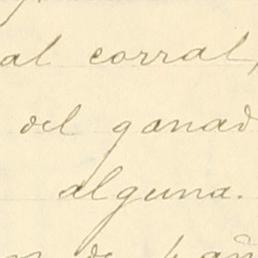 al corral,
del ganad
alguna.